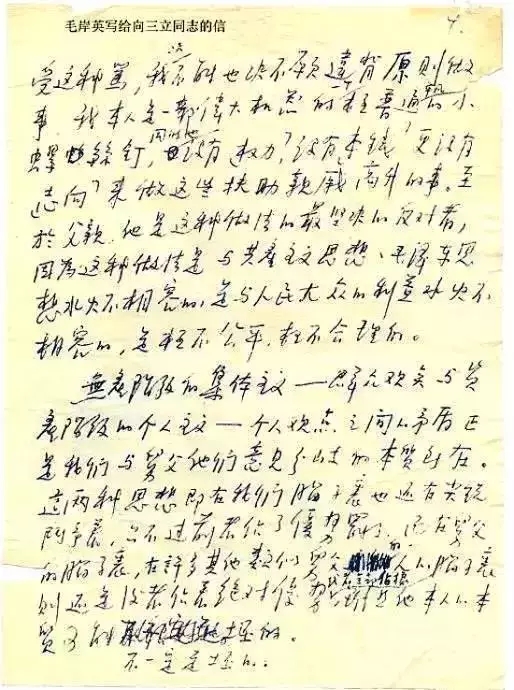 毛岸英写给向三立同志的信
4.
决
受这种骂,我不能也决不愿違背原则做
事,我本人是一部偉大机器的一个极普通的小
螺丝釘,同时也没有“权力”,没有“本钱”,更没有
“志向”来做这些扶助親戚高升的事。至
於父親,他是这种做法的最坚决的反对者,
因為这种做法是与共產主义思想、毛泽东思
想水火不相容的,是与人民大众的利益水火不
相容的,是极不公平,极不合理的。
無產阶级的集体主义——群众观点与資
產阶级的个人主义——个人观点之间的矛盾正
是我们与舅父他们意见分歧的本質所在。
這两种思想即在我们脑子裏也还有尖銳
鬥爭着,只不过前者佔了優势罢了。而在舅父
的脑子裏,在許多其他类似舅父的人的脑子裏
則还是後者佔着絕对優势,或者全部佔據,
他本人的本
質可能
不一定是坏的。